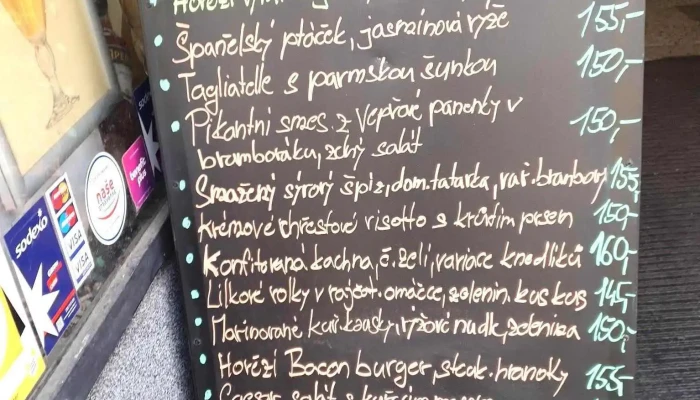 Hovězí
Španělský ptáček, jasmínová rýže 155,-
Tagliatelle s parmskou šunkou 150,-
Pikantní směs z vepřové panenky v 150,-
bramboráku, zelný salát
Smažený sýrový špíz, dom. tatarka, vař. brambory 155,-
Krémové chřestové risotto s krůtím prsem 150,-
Konfitovaná kachna, č. zelí, variace knedlíků 160,-
Lilkové rolky v rajčat. omáčce, zelenin. kuskus 145,-
Marinované kuř. kousky, rýžové nudle, zelenina 150,-
Hovězí Bacon burger, steak. hranolky 155,-
Caesar salát s kuřecím
sodexo
VISA
VISA
naše
benefit
plus